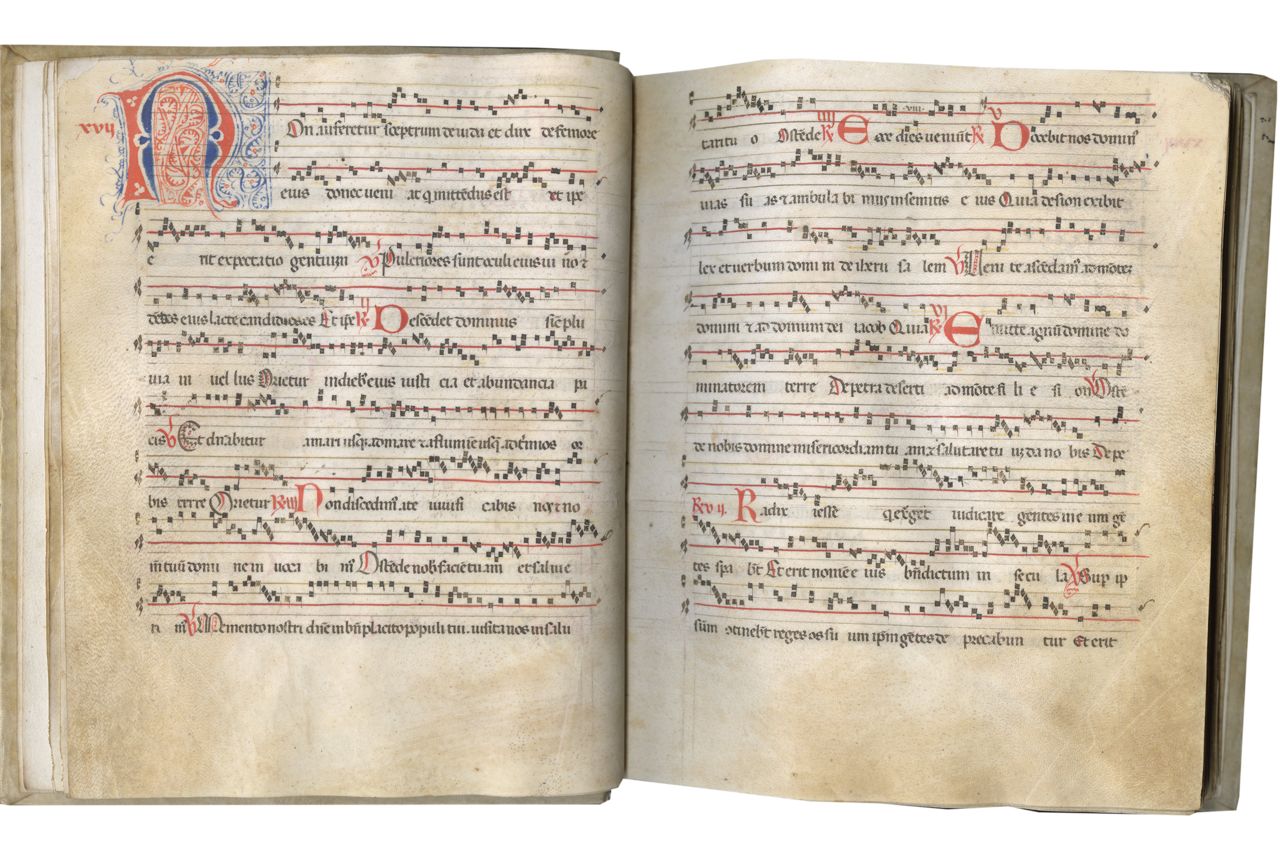 xvij
Non auferetur sceptrum de iuda et dux de femore
eius donec veni at q mittendus est et ipe
e rit expectatio gentium V Pulcriores sunt oculi eius ui no &
dentes eius lacte candidiores Et ipe R ij Descendet dominus sic plu
uia in uel lus Orietur in dieb; eius iusti cia et abundancia pa
cis V Et dnabitur a mari usq; ad mare & a flumine usq; ad tminos or
bis terre Orietur R iij Non discedim; a te uiuifi cabis nos & no
m tuū domi ne in uoca bi m; Ostende nob faciē tu am et salui e
ri m; V Memento nostri dn̄e in bn̄placito populi tui uisita nos in salu
tari tu o Ostende R iiij Ecce dies ueniūt R v Docebit nos domin;
uias su as & ambula bi mus in semitis e ius Quia de sion exibit
lex et uerbum domi ni de ihru sa lem V Ueni te ascēdam; ad mōtē
domini & ad domum dei iacob Quia R vj Emitte agnū domine do
minatorem terre De petra deserti ad mōtē fi li e si on V Oste
de nobis domine misericordiam tu am & salutare tu um da no bis De pe
R vij. Radix iesse q exurget iudicare gentes in e um gē
tes spa bt Et erit nomen e ius bn̄dictum in secu la V Sup ip
sum otinebt reges os su um ipm gētes de precabun tur Et erit